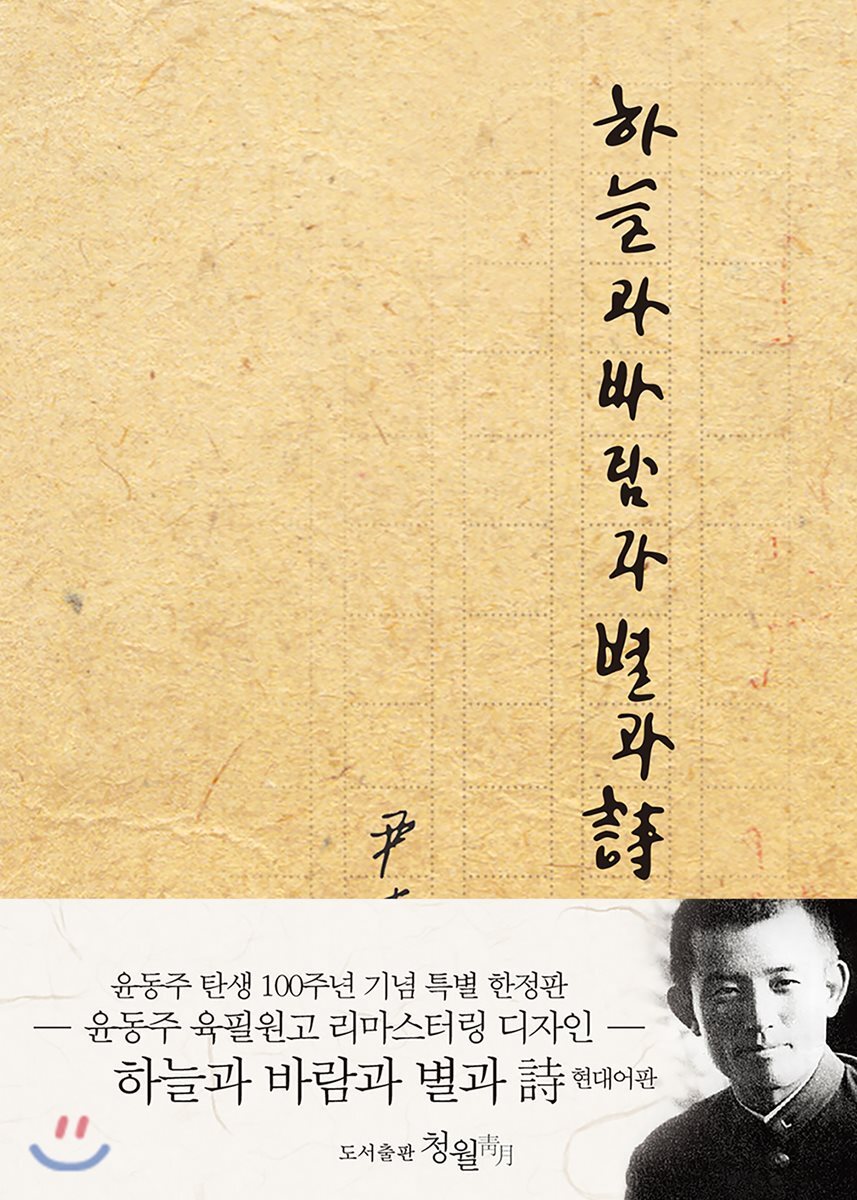 하늘과바람과별과詩
尹
윤동주 탄생 100주년 기념 특별 한정판
— 윤동주 육필원고 리마스터링 디자인 —
하늘과 바람과 별과 詩 현대어판
도서출판 청월靑月